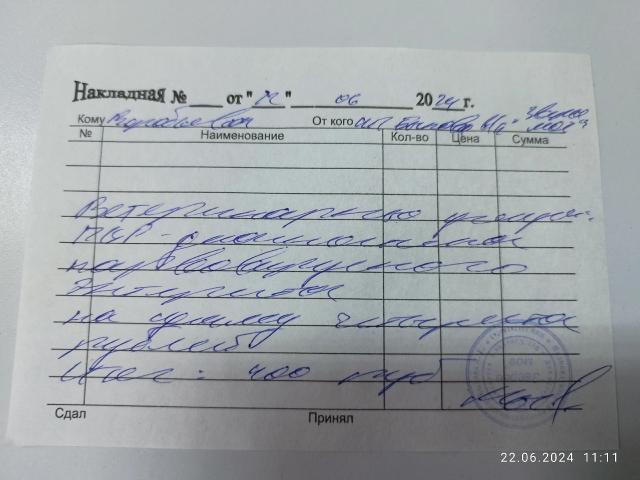 Накладная № от " 22 " 06 2024 г.
Кому От кого ИП
№ Наименование Кол-во Цена Сумма
Ветеринарные
ПЦР-диагностика
парвовирусного
энтерита
на сумму четыреста
рублей
Итог: 400 руб
Сдал Принял
22.06.2024 11:11